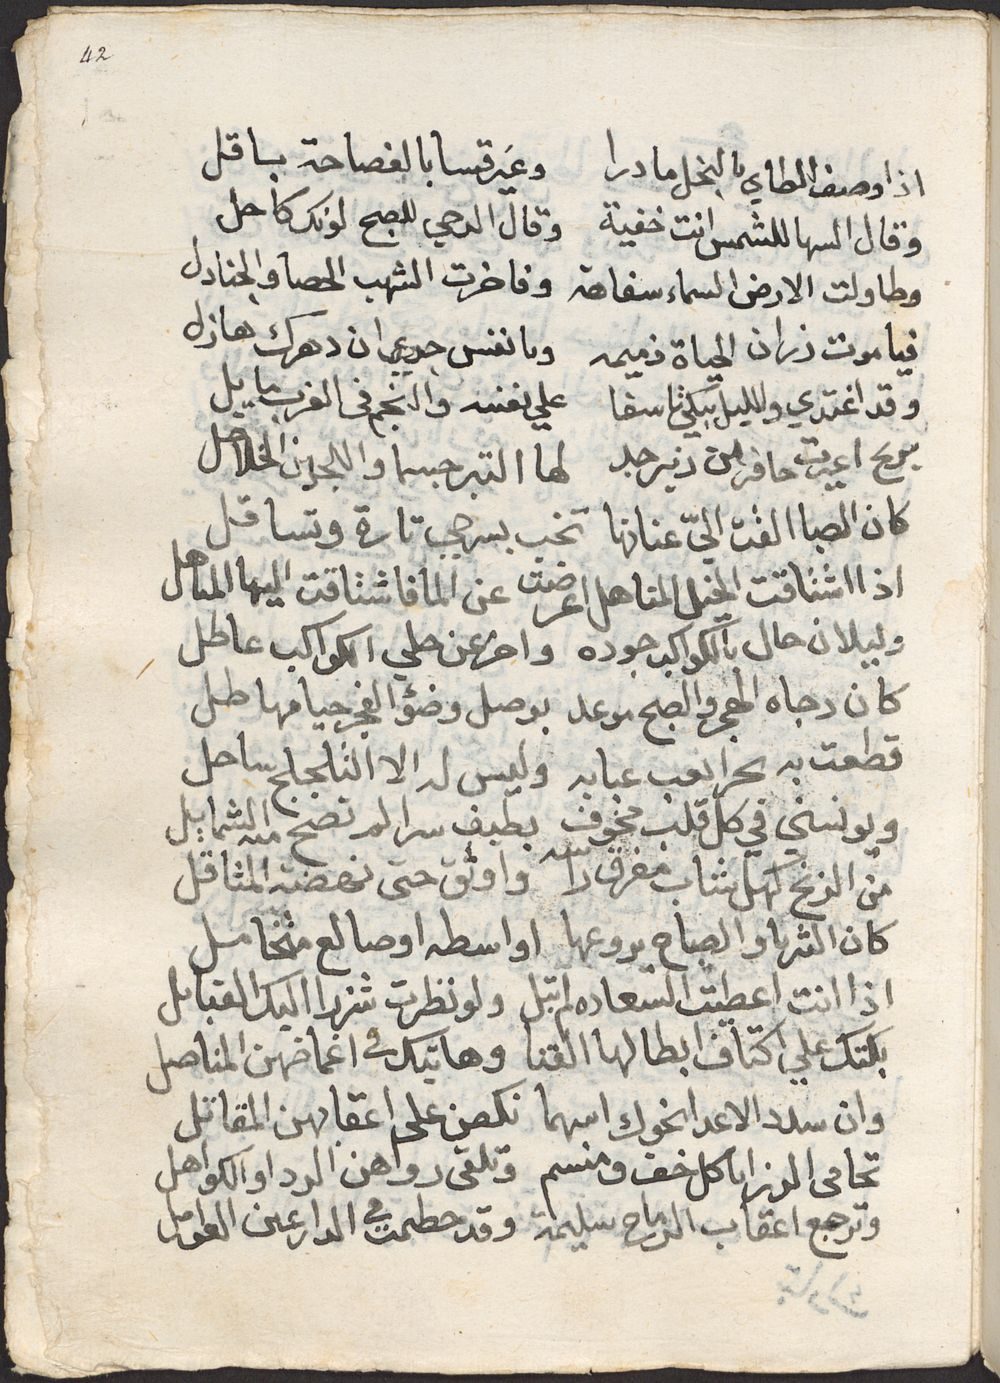 42
اذا وصف الطاي بالبخل مادرا وعير قسا بالفصاحة باقل
وقال السها للشمس انت خفية وقال الدجي للصبح لونك كاحل
وطاولت الارض السماء سفاهة وفاخرت الشهب الحصا والجنادل
فيا موت زر ان الحياة ذميمه ويا نفس جدي ان دهرك هازل
وقد اغتدي والليل يبكي تاسفا علي نفسه والنجم في الغرب مايل
بريح اعيرت حافرا من زبرجد لها التبر جسما واللجين الخلاخل
كان الصبا القت الي عنانها تخب بسرجي تارة وتناقل
اذا اشتاقت الخيل المناهل اعرضت عن الما فاشتاقت اليها المناهل
وليلان حال بالكواكب جوده واخر عن حلي الكواكب عاطل
كان دجاه الهجر والصبح موعد بوصل وضؤ الفجر حيا مماطل
قطعت به بحرا يعب عبابه وليس له الا التبلج ساحل
ويونسني في كل قلب مخوف بطيف سرا لم تصح منه الشمايل
من الزنج كهل شاب مفرق راسه واوثق حتي نهضته المثاقل
كان الثريا والصباح يروعها اواسطه اوصالع متخامل
اذا انت اعطيت السعاده لم تبل ولو نظرت شزرا اليك القبايل
بكتك علي اكتاف ابطالها القنا وهابتك في اغمادهن المناصل
وان سدد الاعدا نحوك اسهما نكصن علي اعقابهن المقاتل
تحامي الرزايا كل خف ومنسم وتلقي رواهن الردا والكواهل
وترجع اعقاب الرماح سليمة وقد حطمت في الدارعين العوامل